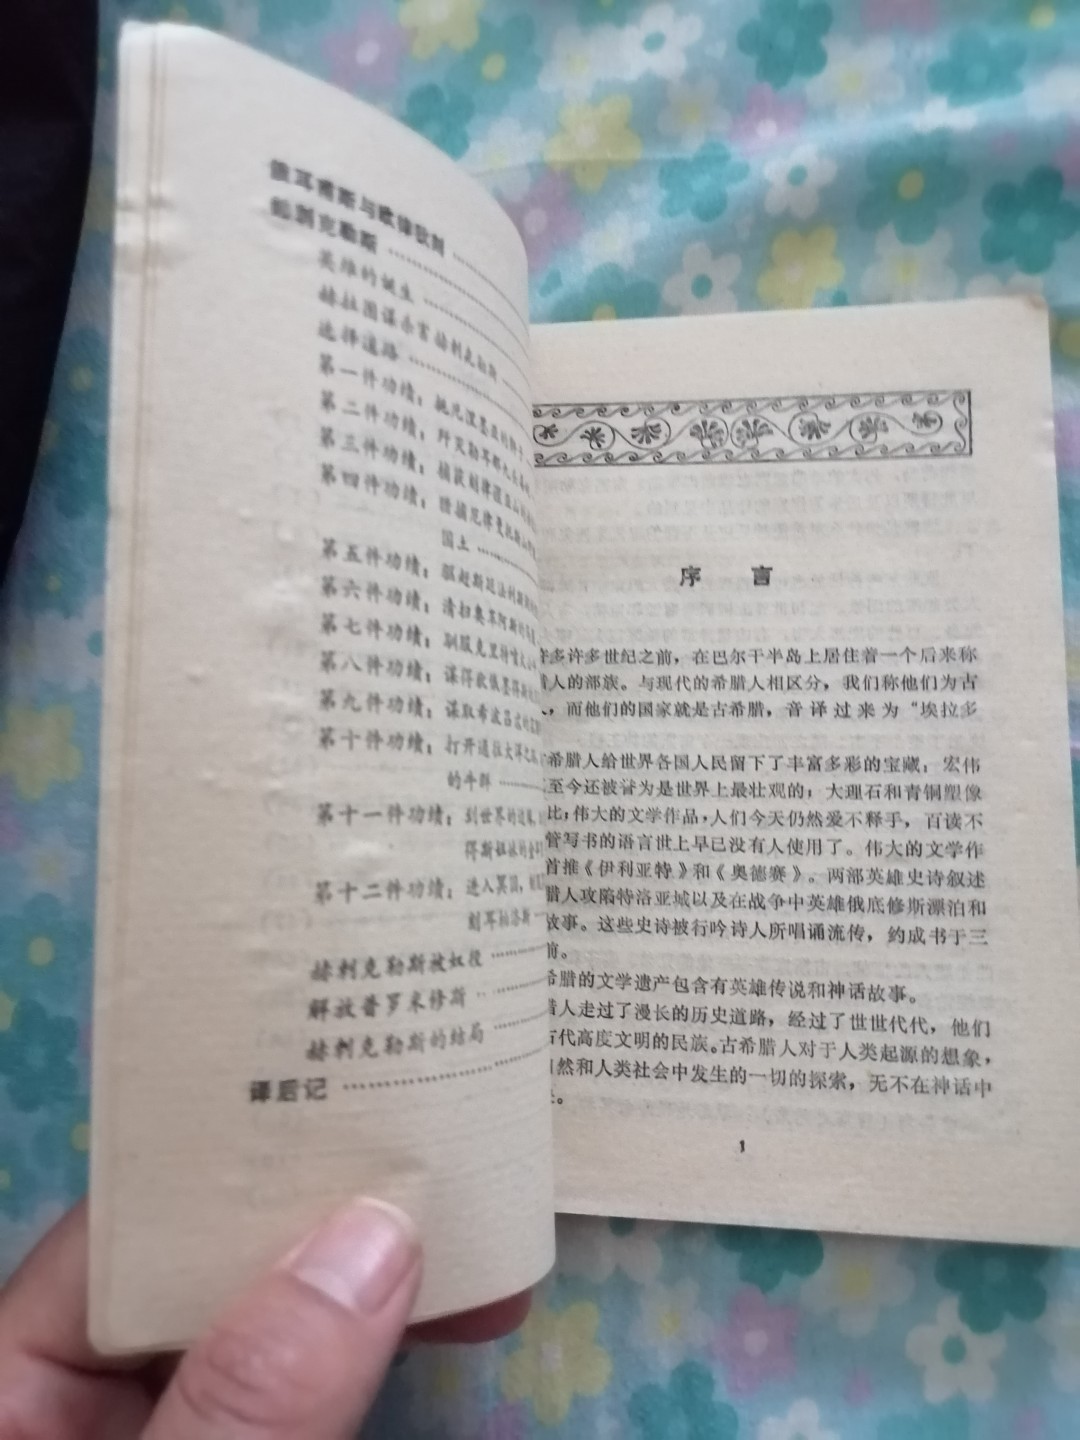 耳甫斯与欧律狄刻
赫剌克勒斯
英雄的诞生
赫拉图谋杀害赫剌克勒斯
选择道路
第一件功绩：扼死涅墨亚的狮子
第二件功绩：歼灭勒耳那九头
第三件功绩：捕获刻律涅亚山
第四件功绩：活捕厄律曼托斯山
国土
第五件功绩：驱赶斯廷法利斯
第六件功绩：清扫奥革阿斯的
第七件功绩：驯服克里特
第八件功绩：谋得狄俄墨得斯
第九件功绩：谋取希波吕忒的
第十件功绩：打开通往大洋之
的牛群
第十一件功绩：到世界的边缘，
得斯姐妹的金
第十二件功绩：进入冥国，
刻耳柏洛斯
赫剌克勒斯被奴役
解放普罗米修斯
赫剌克勒斯的结局
译后记
序 言
许多世纪之前，在巴尔干半岛上居住着一个后来称
腊人的部族。与现代的希腊人相区分，我们称他们为古
，而他们的国家就是古希腊，音译过来为“埃拉多
希腊人给世界各国人民留下了丰富多彩的宝藏：宏伟
至今还被誉为是世界上最壮观的；大理石和青铜塑像
比；伟大的文学作品，人们今天仍然爱不释手，百读不
管写书的语言世上早已没有人使用了。伟大的文学作
首推《伊利亚特》和《奥德赛》。两部英雄史诗叙述
腊人攻陷特洛亚城以及在战争中英雄俄底修斯漂泊和
故事。这些史诗被行吟诗人所唱诵流传，约成书于三
前。
希腊的文学遗产包含有英雄传说和神话故事。
腊人走过了漫长的历史道路，经过了世世代代，他们
古代高度文明的民族。古希腊人对于人类起源的想象，
自然和人类社会中发生的一切的探索，无不在神话中
。
1